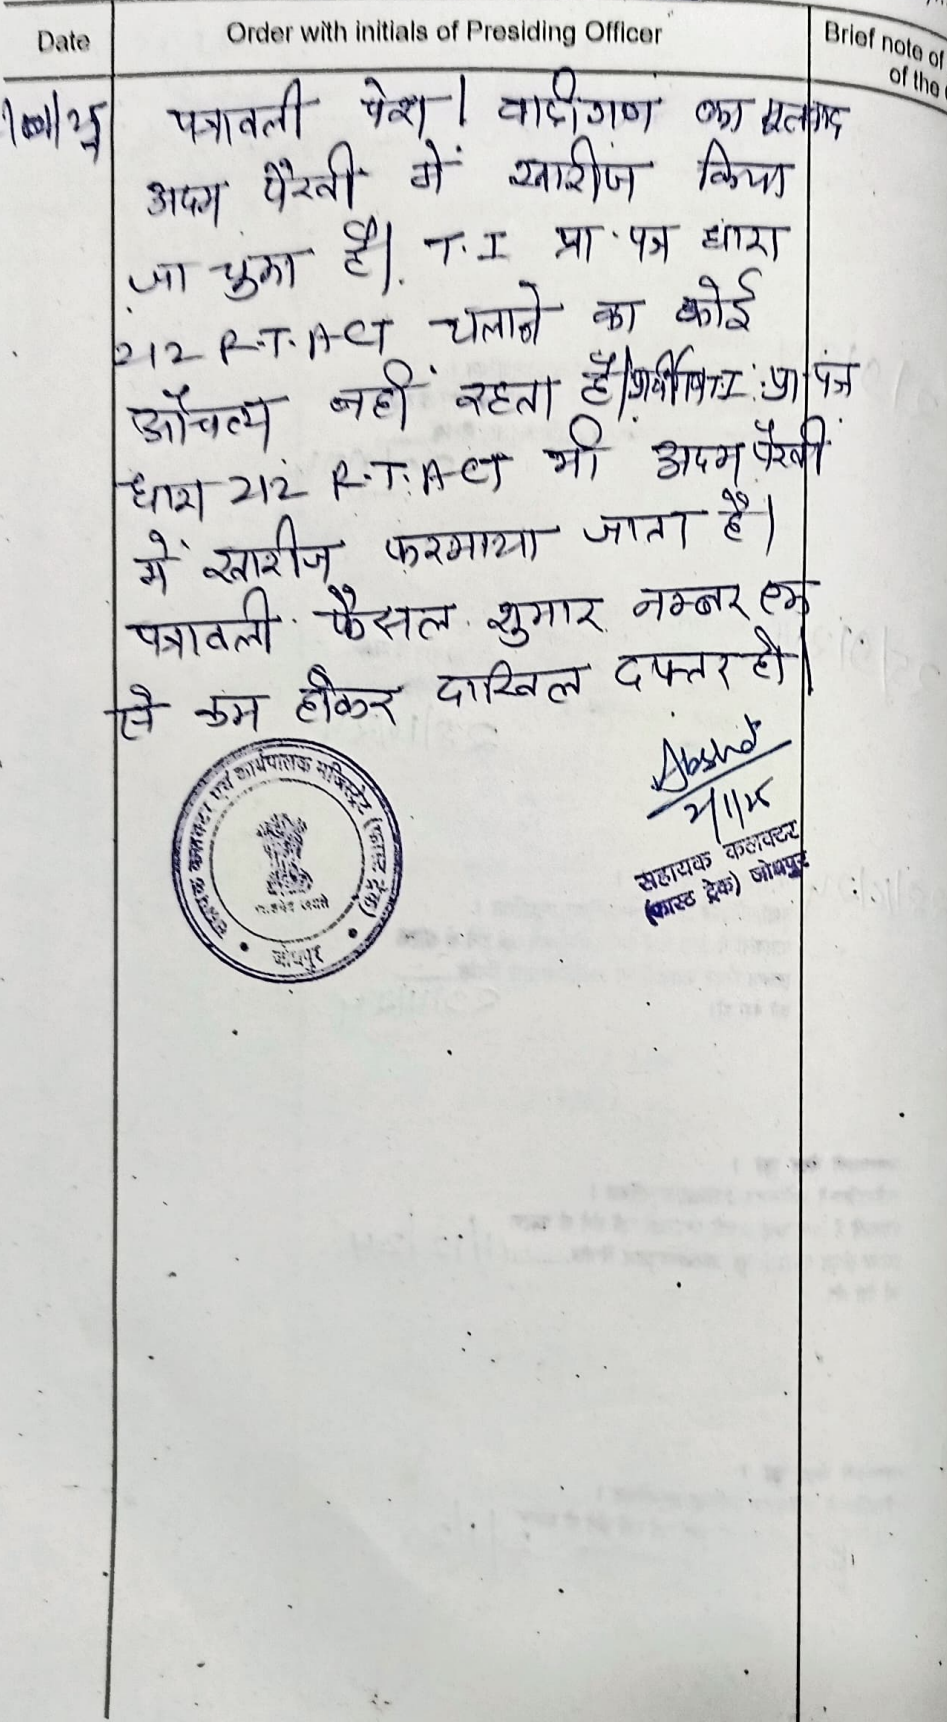 Date
Order with initials of Presiding Officer
Brief note of
of the
पत्रावली पेश। वादीगण का मूलवाद
अदम पैरवी में खारीज किया
जा चुका है। T.I प्रा.पत्र धारा
212 R.T.ACT चलाने का कोई
औचत्य नहीं रहता है। T.I प्रा पत्र
धारा 212 R.T.ACT भी अदम पैरवी
में खारीज फरमाया जाता है।
पत्रावली फैसल शुमार नम्बर
से कम होकर दाखिल दफ्तर हो।
सहायक कलक्टर
(फास्ट ट्रेक) जोधपुर
सहायक कलक्टर एवं कार्यपालक मजिस्ट्रेट (फास्ट ट्रेक)
सत्यमेव जयते
जोधपुर